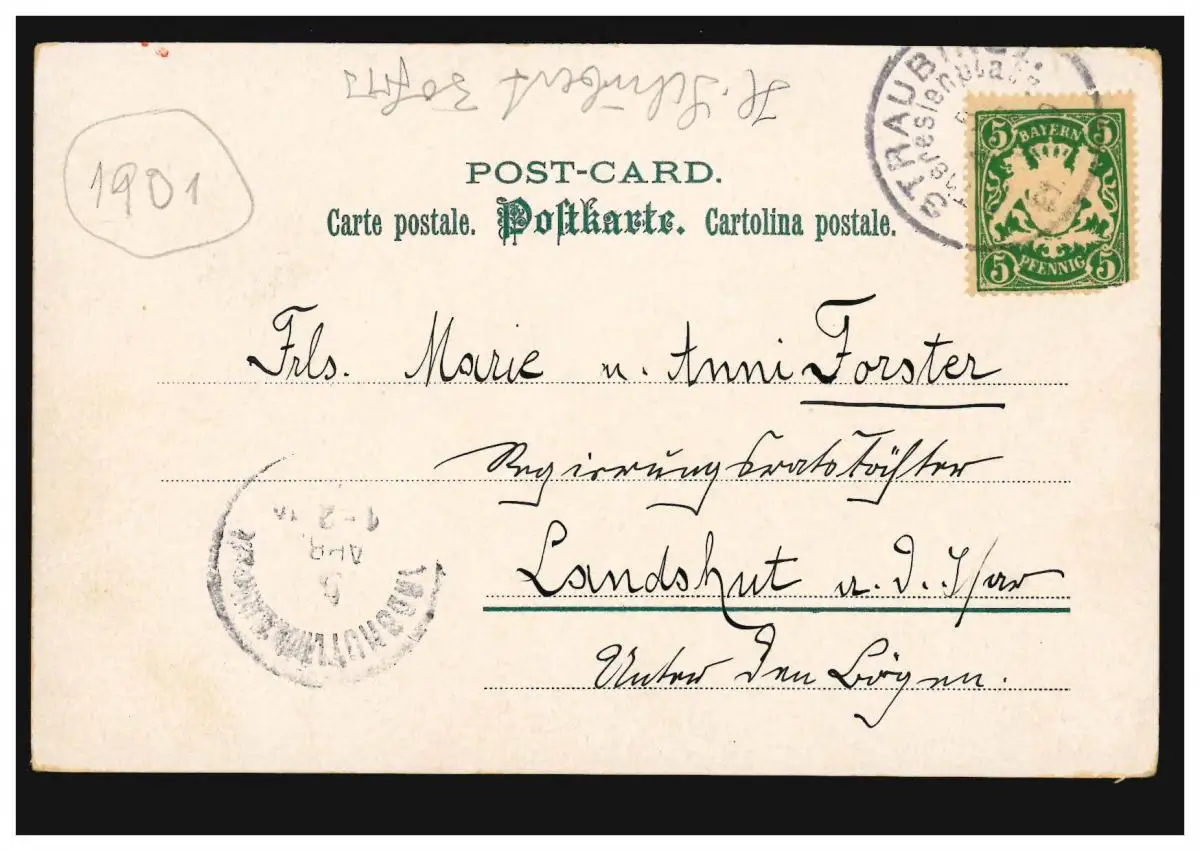 H. Schubert
1901
POST-CARD.
Carte postale. Postkarte. Cartolina postale.
STRAUBING
Theresienplatz
5 BAYERN 5
5 PFENNIG 5
Frls. Marie u. Anni Forster
Regierungsratstöchter
Landshut a. d. Isar
Unter den Bögen.
LANDSHUT
5
APR.
1-2